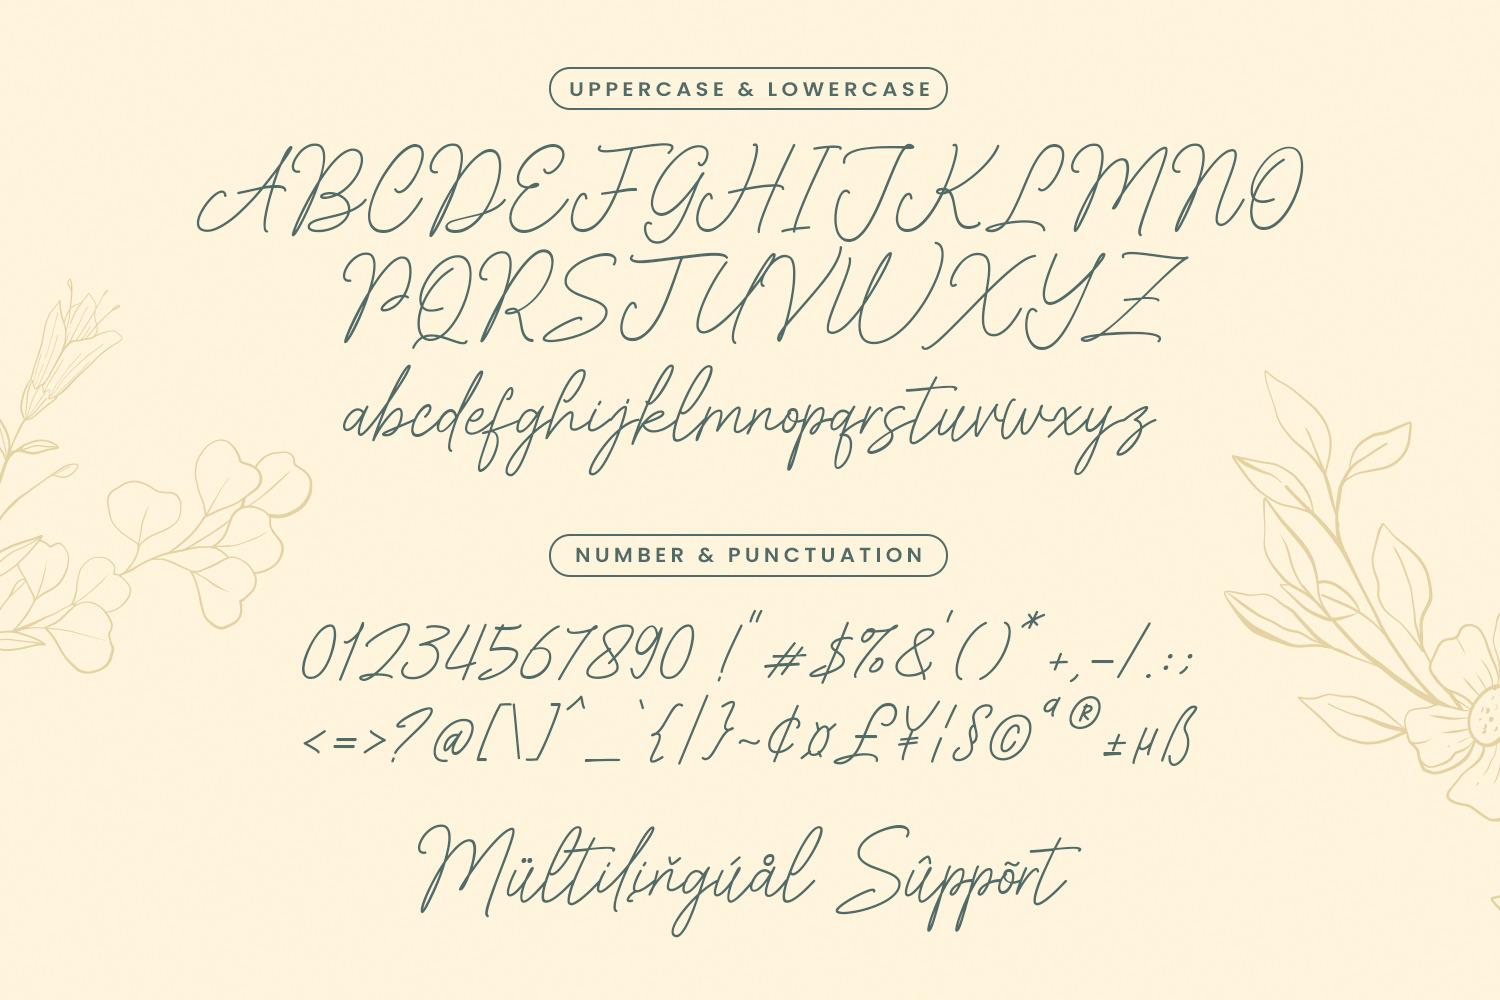 UPPERCASE & LOWERCASE
ABCDEFGHIJKLMNO
PQRSTUVWXYZ
abcdefghijklmnopqrstuvwxyz
NUMBER & PUNCTUATION
01234567890 !"#$%&'()*+,-/.:;
<=>?@[\]^_`{|}~¢¤£¥¦§©ª®±µß
Mültiliňgúål Sûppõrt